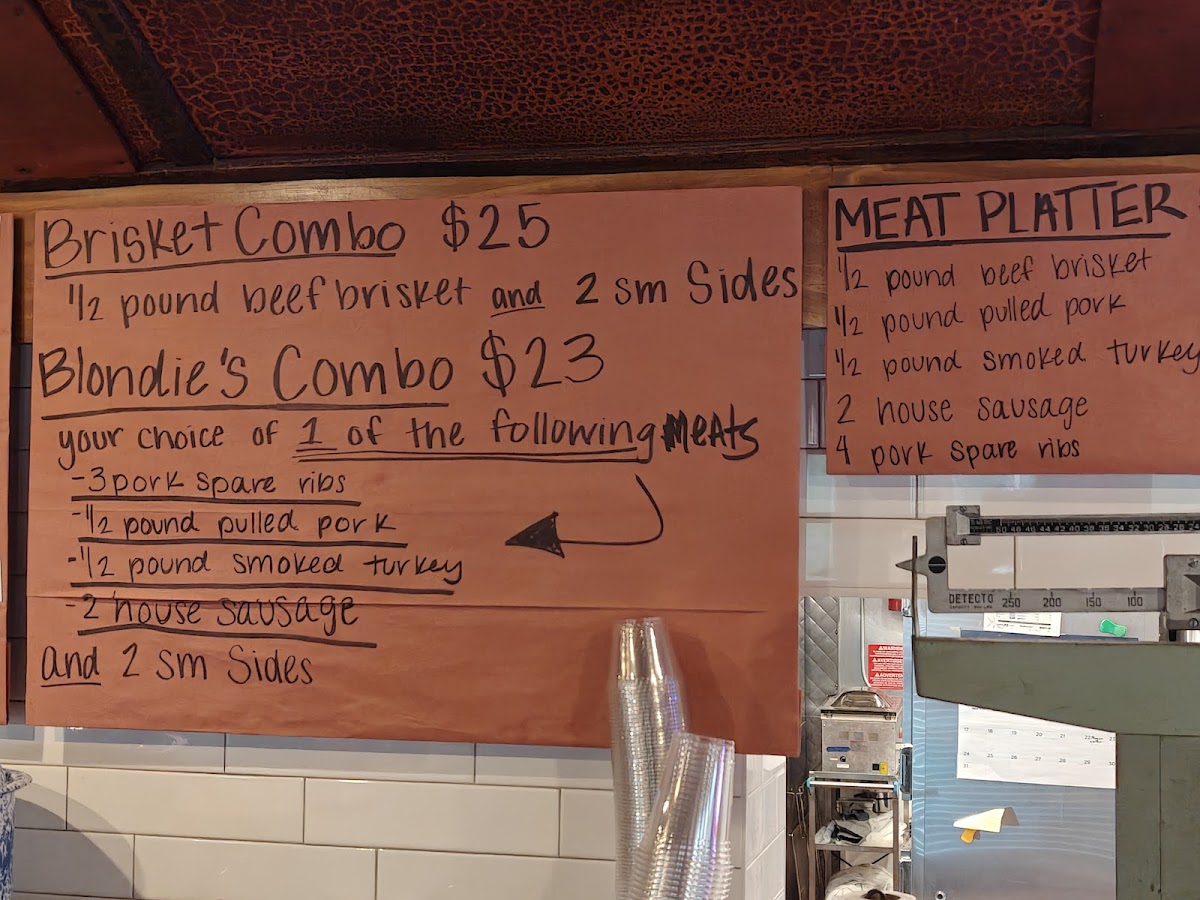 Brisket Combo $25
1/2 pound beef brisket and 2 sm Sides
Blondie's Combo $23
your choice of 1 of the following MEATS
-3 pork spare ribs
-1/2 pound pulled pork
-1/2 pound smoked turkey
-2 house sausage
and 2 sm Sides
MEAT PLATTER
1/2 pound beef brisket
1/2 pound pulled pork
1/2 pound smoked turkey
2 house sausage
4 pork spare ribs
DETECTO
250 200 150 100
17 18 19 20 21 22 23
24 25 26 27 28 29 30
31